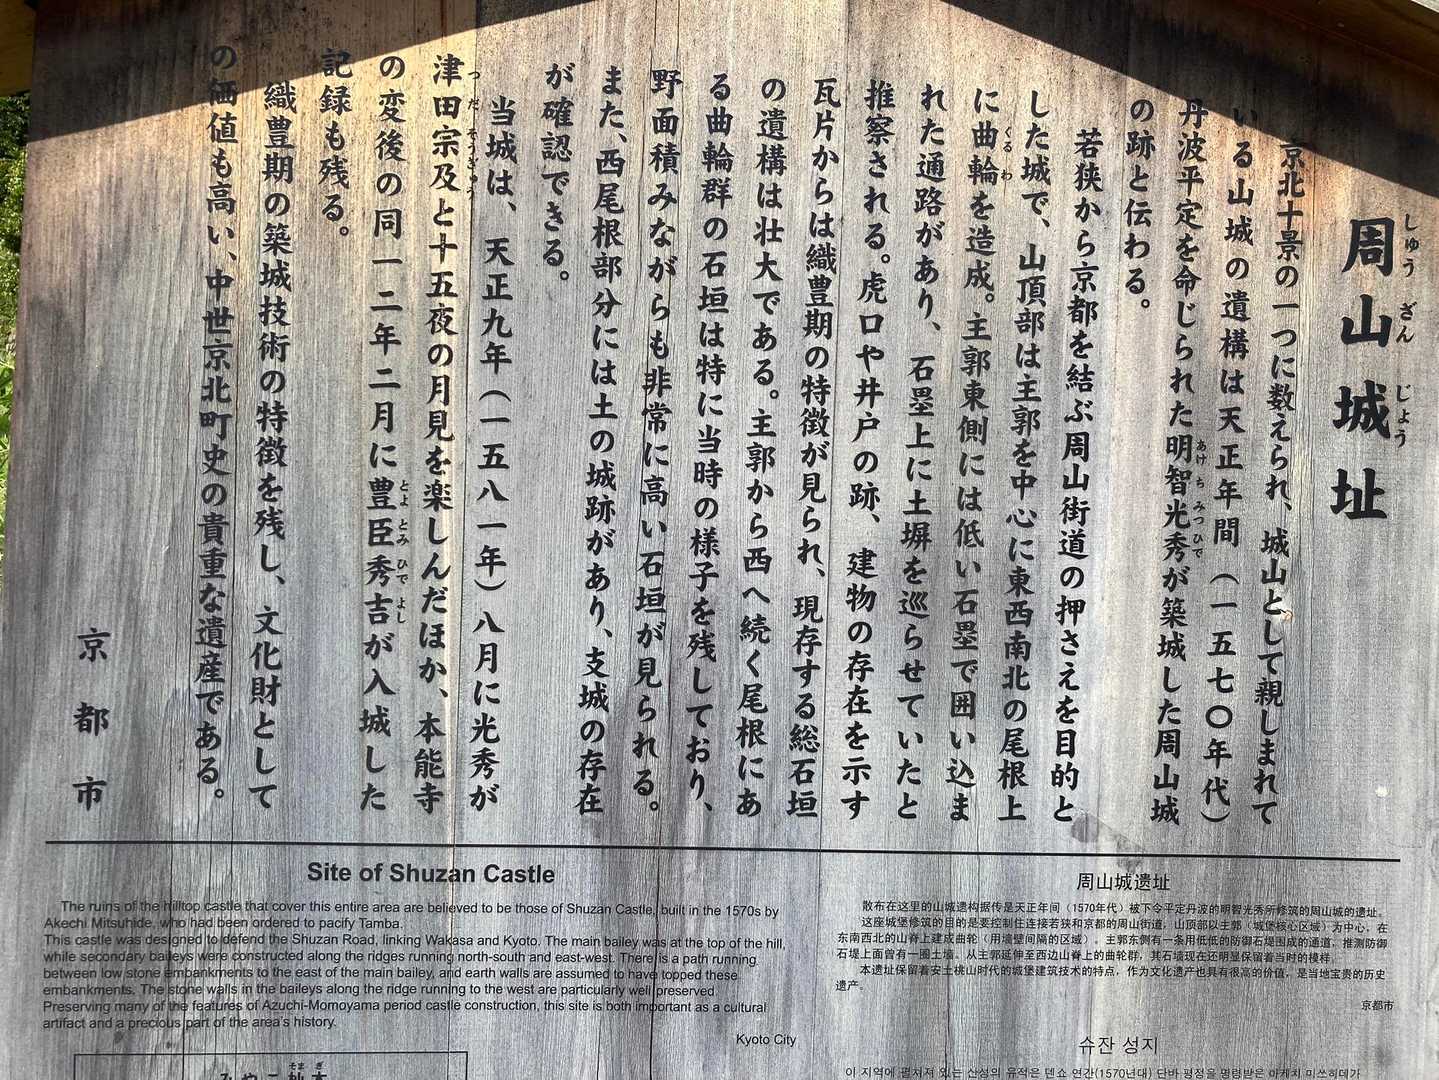 周山城址
しゅうざんじょう
京北十景の一つに数えられ、城山として親しまれて
いる山城の遺構は天正年間（一五七〇年代）
丹波平定を命じられた明智光秀が築城した周山城
あけちみつひで
の跡と伝わる。
若狭から京都を結ぶ周山街道の押さえを目的と
した城で、山頂部は主郭を中心に東西南北の尾根上
に曲輪を造成。主郭東側には低い石塁で囲い込ま
くるわ
れた通路があり、石塁上に土塀を巡らせていたと
推察される。虎口や井戸の跡、建物の存在を示す
瓦片からは織豊期の特徴が見られ、現存する総石垣
の遺構は壮大である。主郭から西へ続く尾根にあ
る曲輪群の石垣は特に当時の様子を残しており、
野面積みながらも非常に高い石垣が見られる。
また、西尾根部分には土の城跡があり、支城の存在
が確認できる。
当城は、天正九年（一五八一年）八月に光秀が
津田宗及と十五夜の月見を楽しんだほか、本能寺
つだそうぎゅう
の変後の同一二年二月に豊臣秀吉が入城した
とよとみひでよし
記録も残る。
織豊期の築城技術の特徴を残し、文化財として
の価値も高い、中世京北町史の貴重な遺産である。
京都市
Site of Shuzan Castle
The ruins of the hilltop castle that cover this entire area are believed to be those of Shuzan Castle, built in the 1570s by
Akechi Mitsuhide, who had been ordered to pacify Tamba.
This castle was designed to defend the Shuzan Road, linking Wakasa and Kyoto. The main bailey was at the top of the hill,
while secondary baileys were constructed along the ridges running north-south and east-west. There is a path running
between low stone embankments to the east of the main bailey, and earth walls are assumed to have topped these
embankments. The stone walls in the baileys along the ridge running to the west are particularly well preserved.
Preserving many of the features of Azuchi-Momoyama period castle construction, this site is both important as a cultural
artifact and a precious part of the area's history.
Kyoto City
周山城遗址
散布在这里的山城遗构据传是天正年间（1570年代）被下令平定丹波的明智光秀所修筑的周山城的遗址。
这座城堡修筑的目的是要控制住连接若狭和京都的周山街道，山顶部以主郭（城堡核心区域）为中心，在
东南西北的山脊上建成曲轮（用墙壁间隔的区域）。主郭东侧有一条用低低的防御石堤围成的通道，推测防御
石堤上面曾有一圈土墙。从主郭延伸至西边山脊上的曲轮群，其石墙现在还明显保留着当时的模样。
本遗址保留着安土桃山时代的城堡建筑技术的特点，作为文化遗产也具有很高的价值，是当地宝贵的历史
遗产。
京都市
슈잔 성지
이 지역에 펼쳐져 있는 산성의 유적은 덴쇼 연간(1570년대) 단바 평정을 명령받은 아케치 미쓰히데가
みやこ杣木
そまぎ